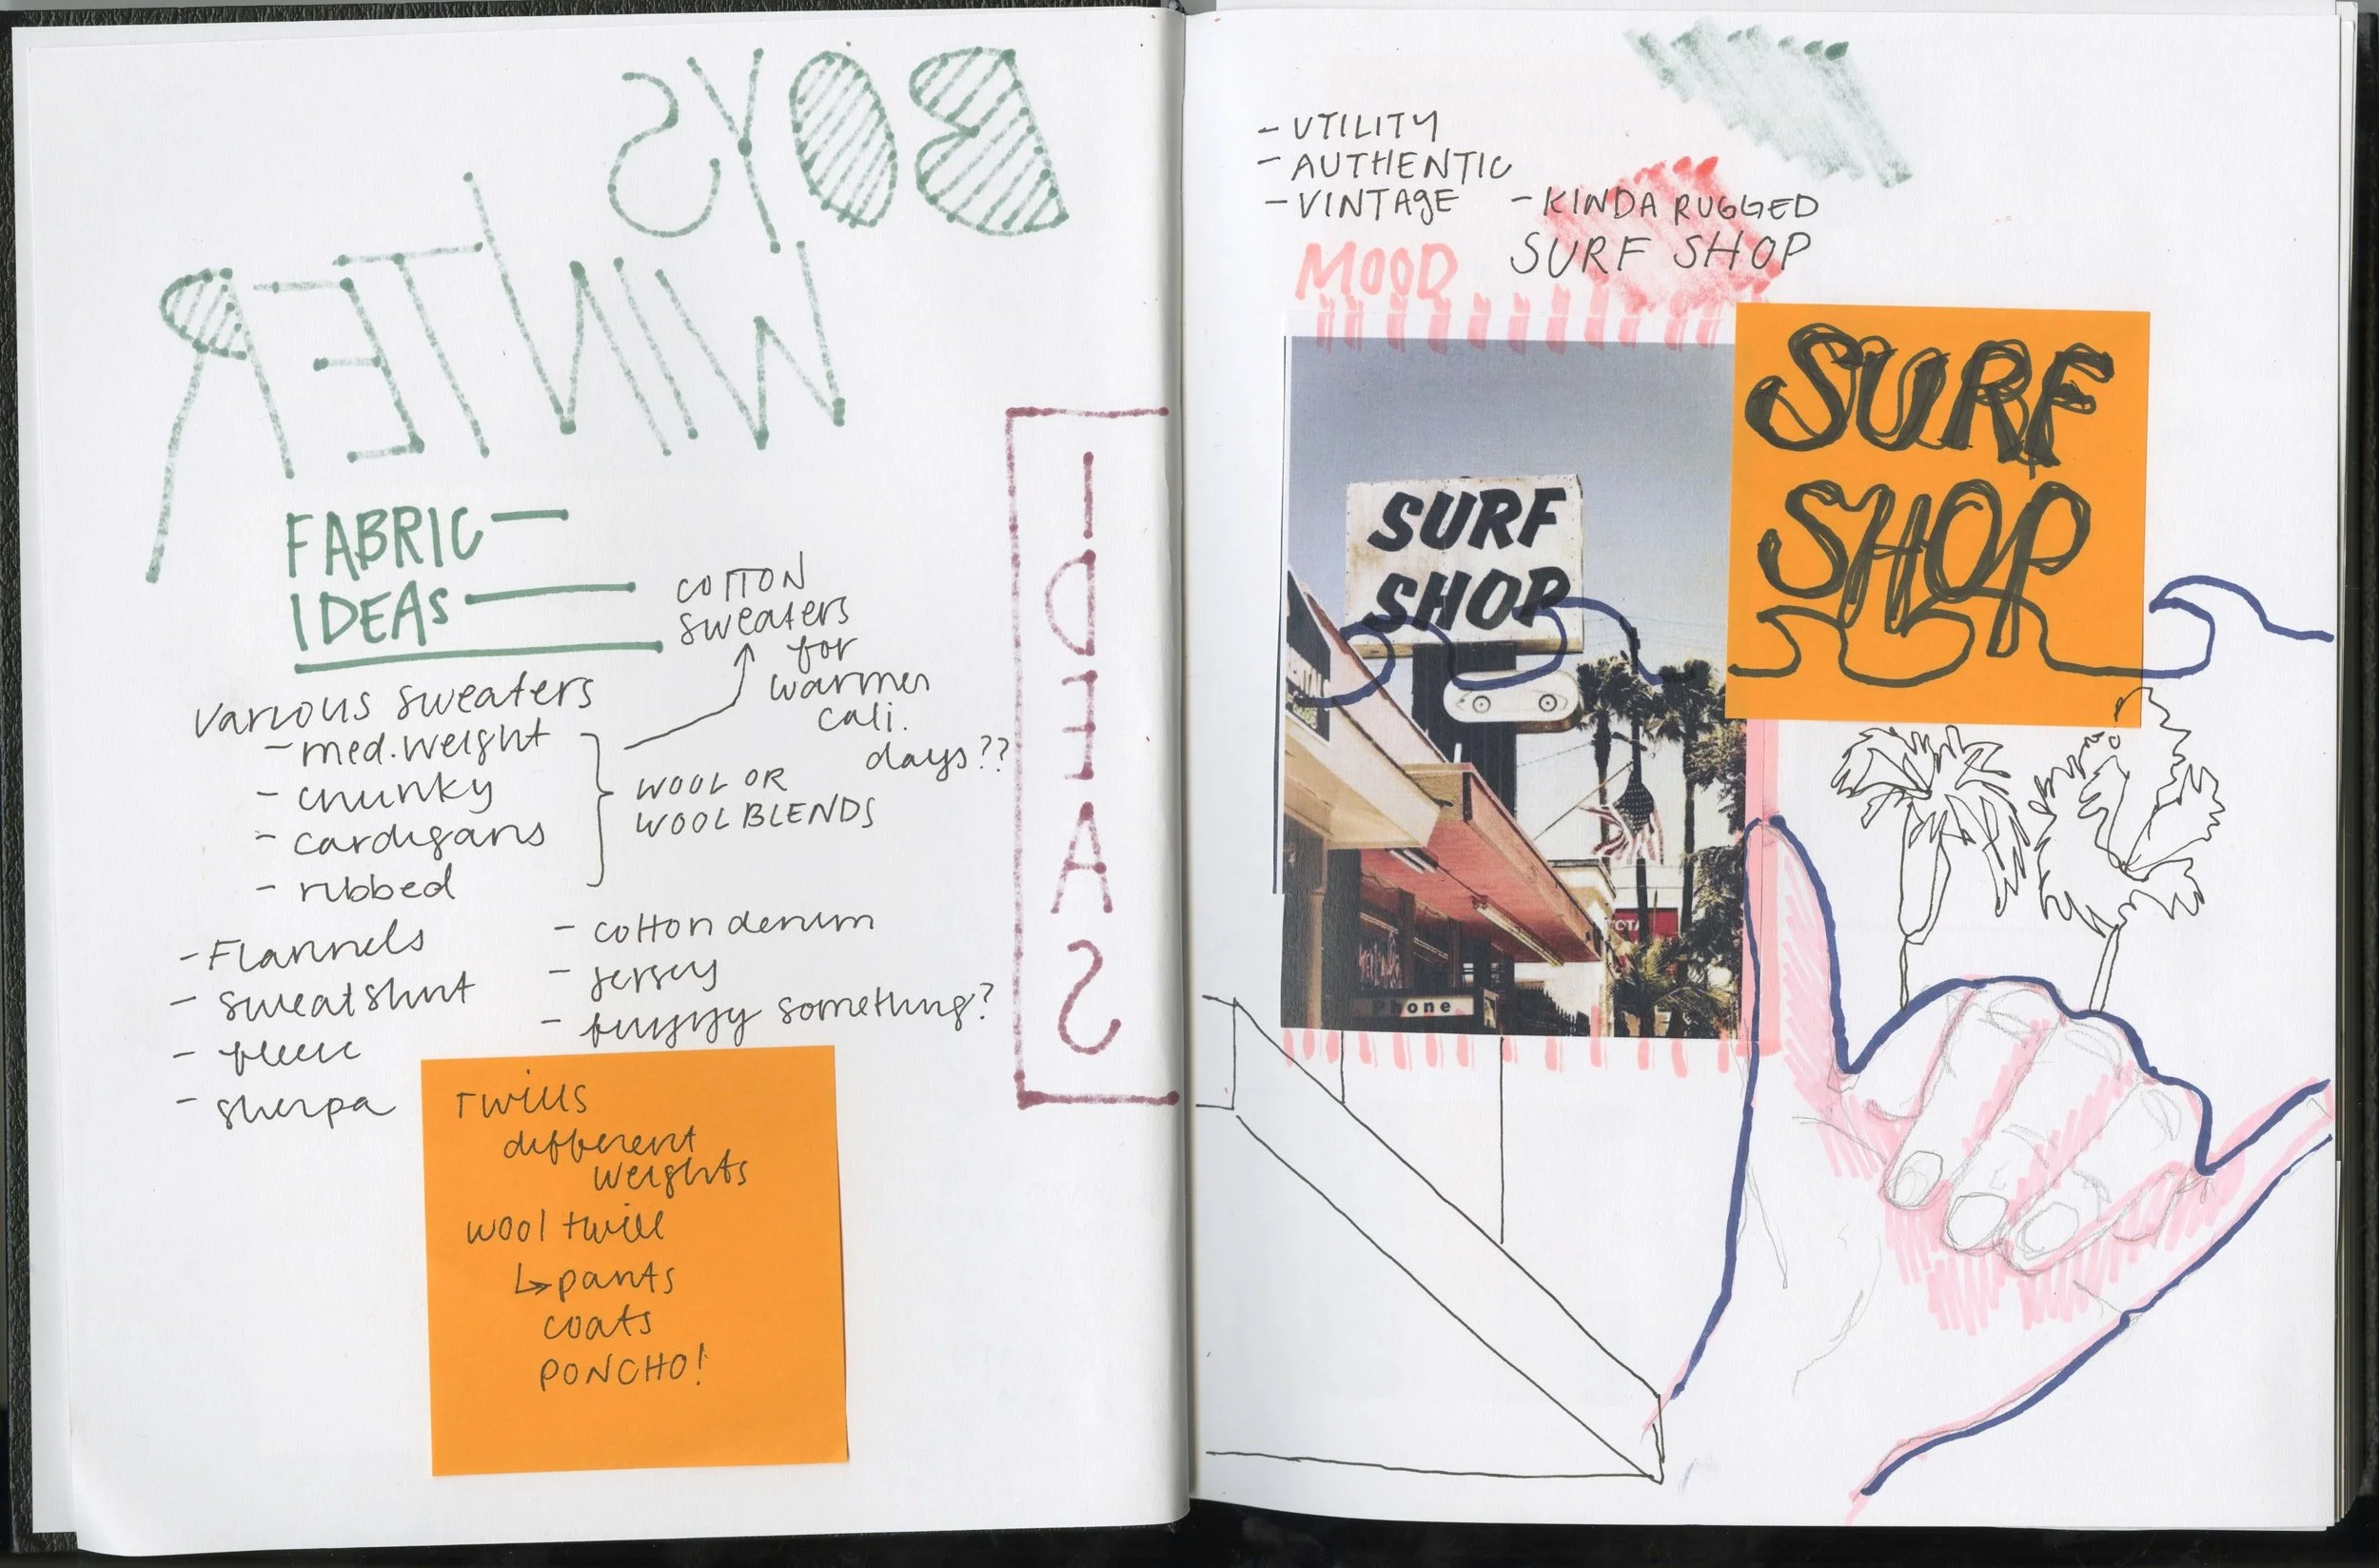 BOYS
WINTER
FABRIC
IDEAS
IDEAS
various sweaters
- med. weight
- chunky
- cardigans
- ribbed
WOOL OR
WOOL BLENDS
COTTON
sweaters
for
warmer
cali.
days??
- Flannels
- sweatshirt
- fleece
- sherpa
- cotton denim
- jersey
- fuzzy something?
Twills
different
weights
wool twill
↳ pants
coats
PONCHO!
- UTILITY
- AUTHENTIC
- VINTAGE
- KINDA RUGGED
SURF SHOP
MOOD
SURF
SHOP
SURF
SHOP
Phone